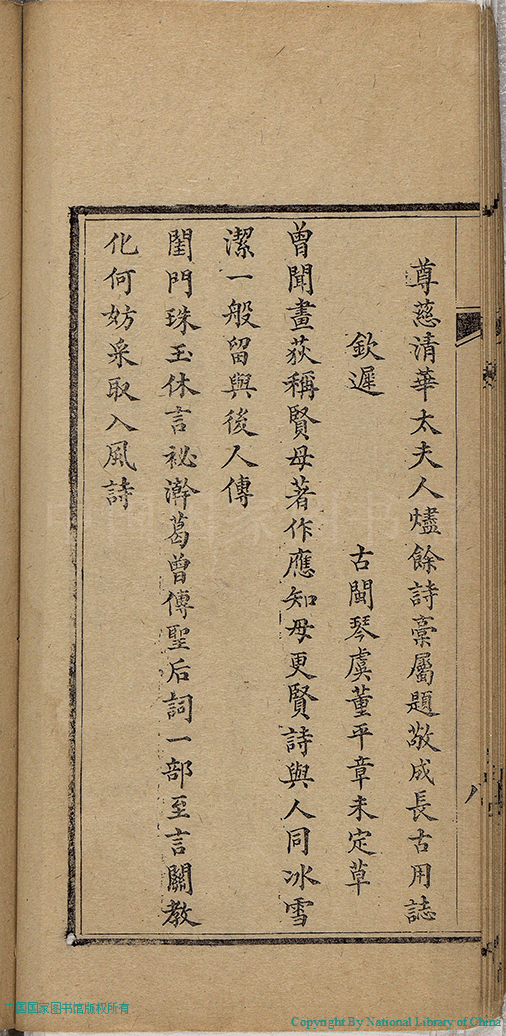 尊慈清華太夫人燼餘詩稾屬題敬成長古用誌
欽遲
古閩琴虞董平章未定草
曾聞畫荻稱賢母著作應知母更賢詩與人同冰雪
潔一般留與後人傳
閨門珠玉休言祕澣葛曾傳聖后詞一部至言關教
化何妨采取入風詩
八
中国国家图书馆版权所有
Copyright By National Library of China